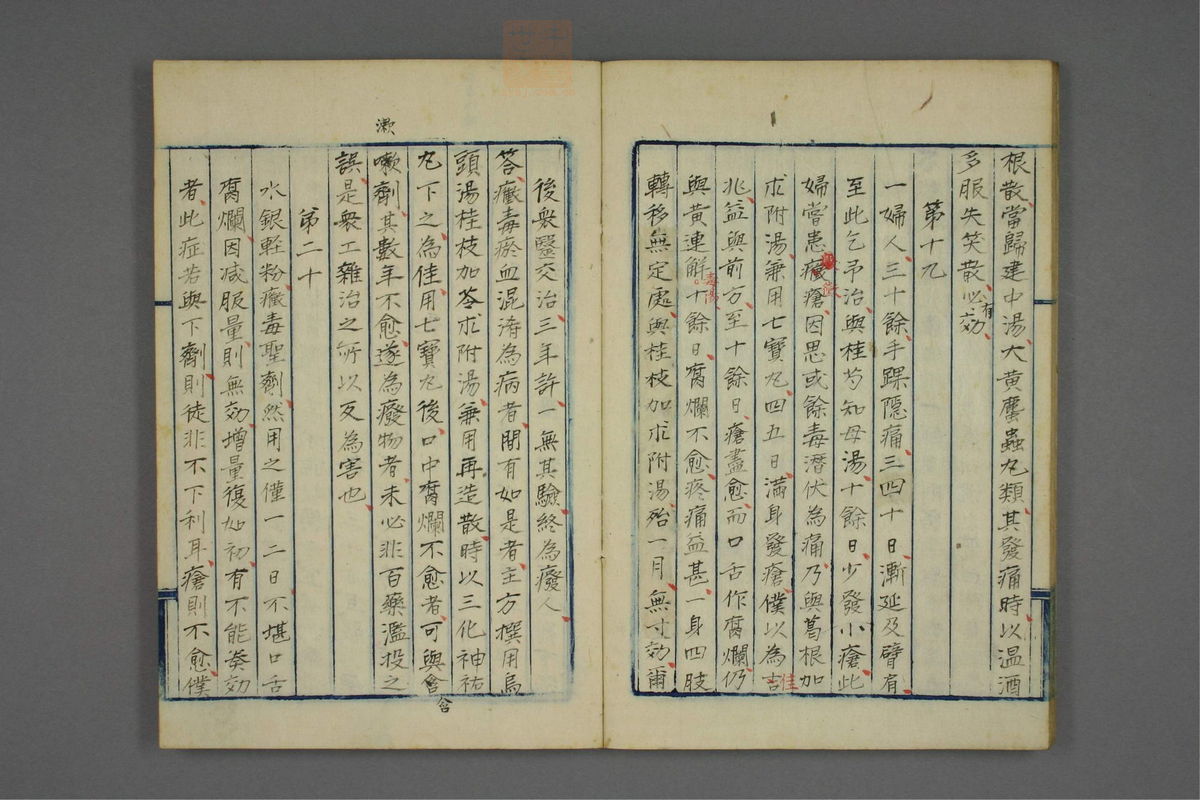 根散當歸建中湯大黃䗪蟲丸類其發痛時以温酒
多服失笑散必有効
第十九
一婦人三十餘手踝隱痛三四十日漸延及臂有
至此乞予治與桂芍知母湯十餘日少發小瘡此
婦嘗患黴瘡因思或餘毒潛伏為痛乃與葛根加
朮附湯兼用七寶丸四五日滿身發瘡僕以為吉
佳
兆益與前方至十餘日瘡盡愈而口舌作腐爛仍
與黃連解毒湯十餘日腐爛不愈疼痛益甚一身四肢
轉移無定處與桂枝加朮附湯殆一月無寸効爾
後衆醫交治三年許一無其驗終為廢人
答黴毒瘀血混淆為病者間有如是者主方撰用烏
頭湯桂枝加苓朮附湯兼用再造散時以三化神祐
丸下之為佳用七寶丸後口中腐爛不愈者可與含
含
漱
嗽劑其數年不愈遂為癈物者未必非百藥濫投之
誤是衆工雜治之所以反為害也
第二十
水銀軽粉黴毒聖劑然用之僅一二日不堪口舌
腐爛因减服量則無効增量復如初有不能奏効
者此症若與下劑則徒非不下利耳瘡則不愈僕